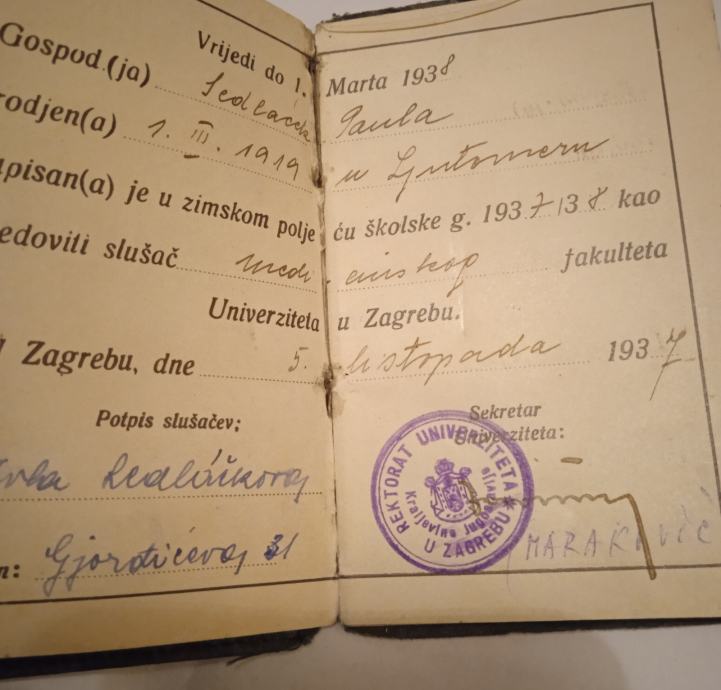 Vrijedi do 1. Marta 1938
Gospod.(ja) Sedláček Paula
rodjen(a) 1. III. 1919 u Ljutomeru
upisan(a) je u zimskom poljeću školske g. 1937/38 kao
redoviti slušač medicinskog fakulteta
Univerziteta u Zagrebu.
U Zagrebu, dne 5. listopada 1937
Potpis slušačev:
Sekretar
Univerziteta:
REKTORAT UNIVERZITETA
U ZAGREBU
Kraljevina Jugoslavija
MARAKOVIĆ
n:
31